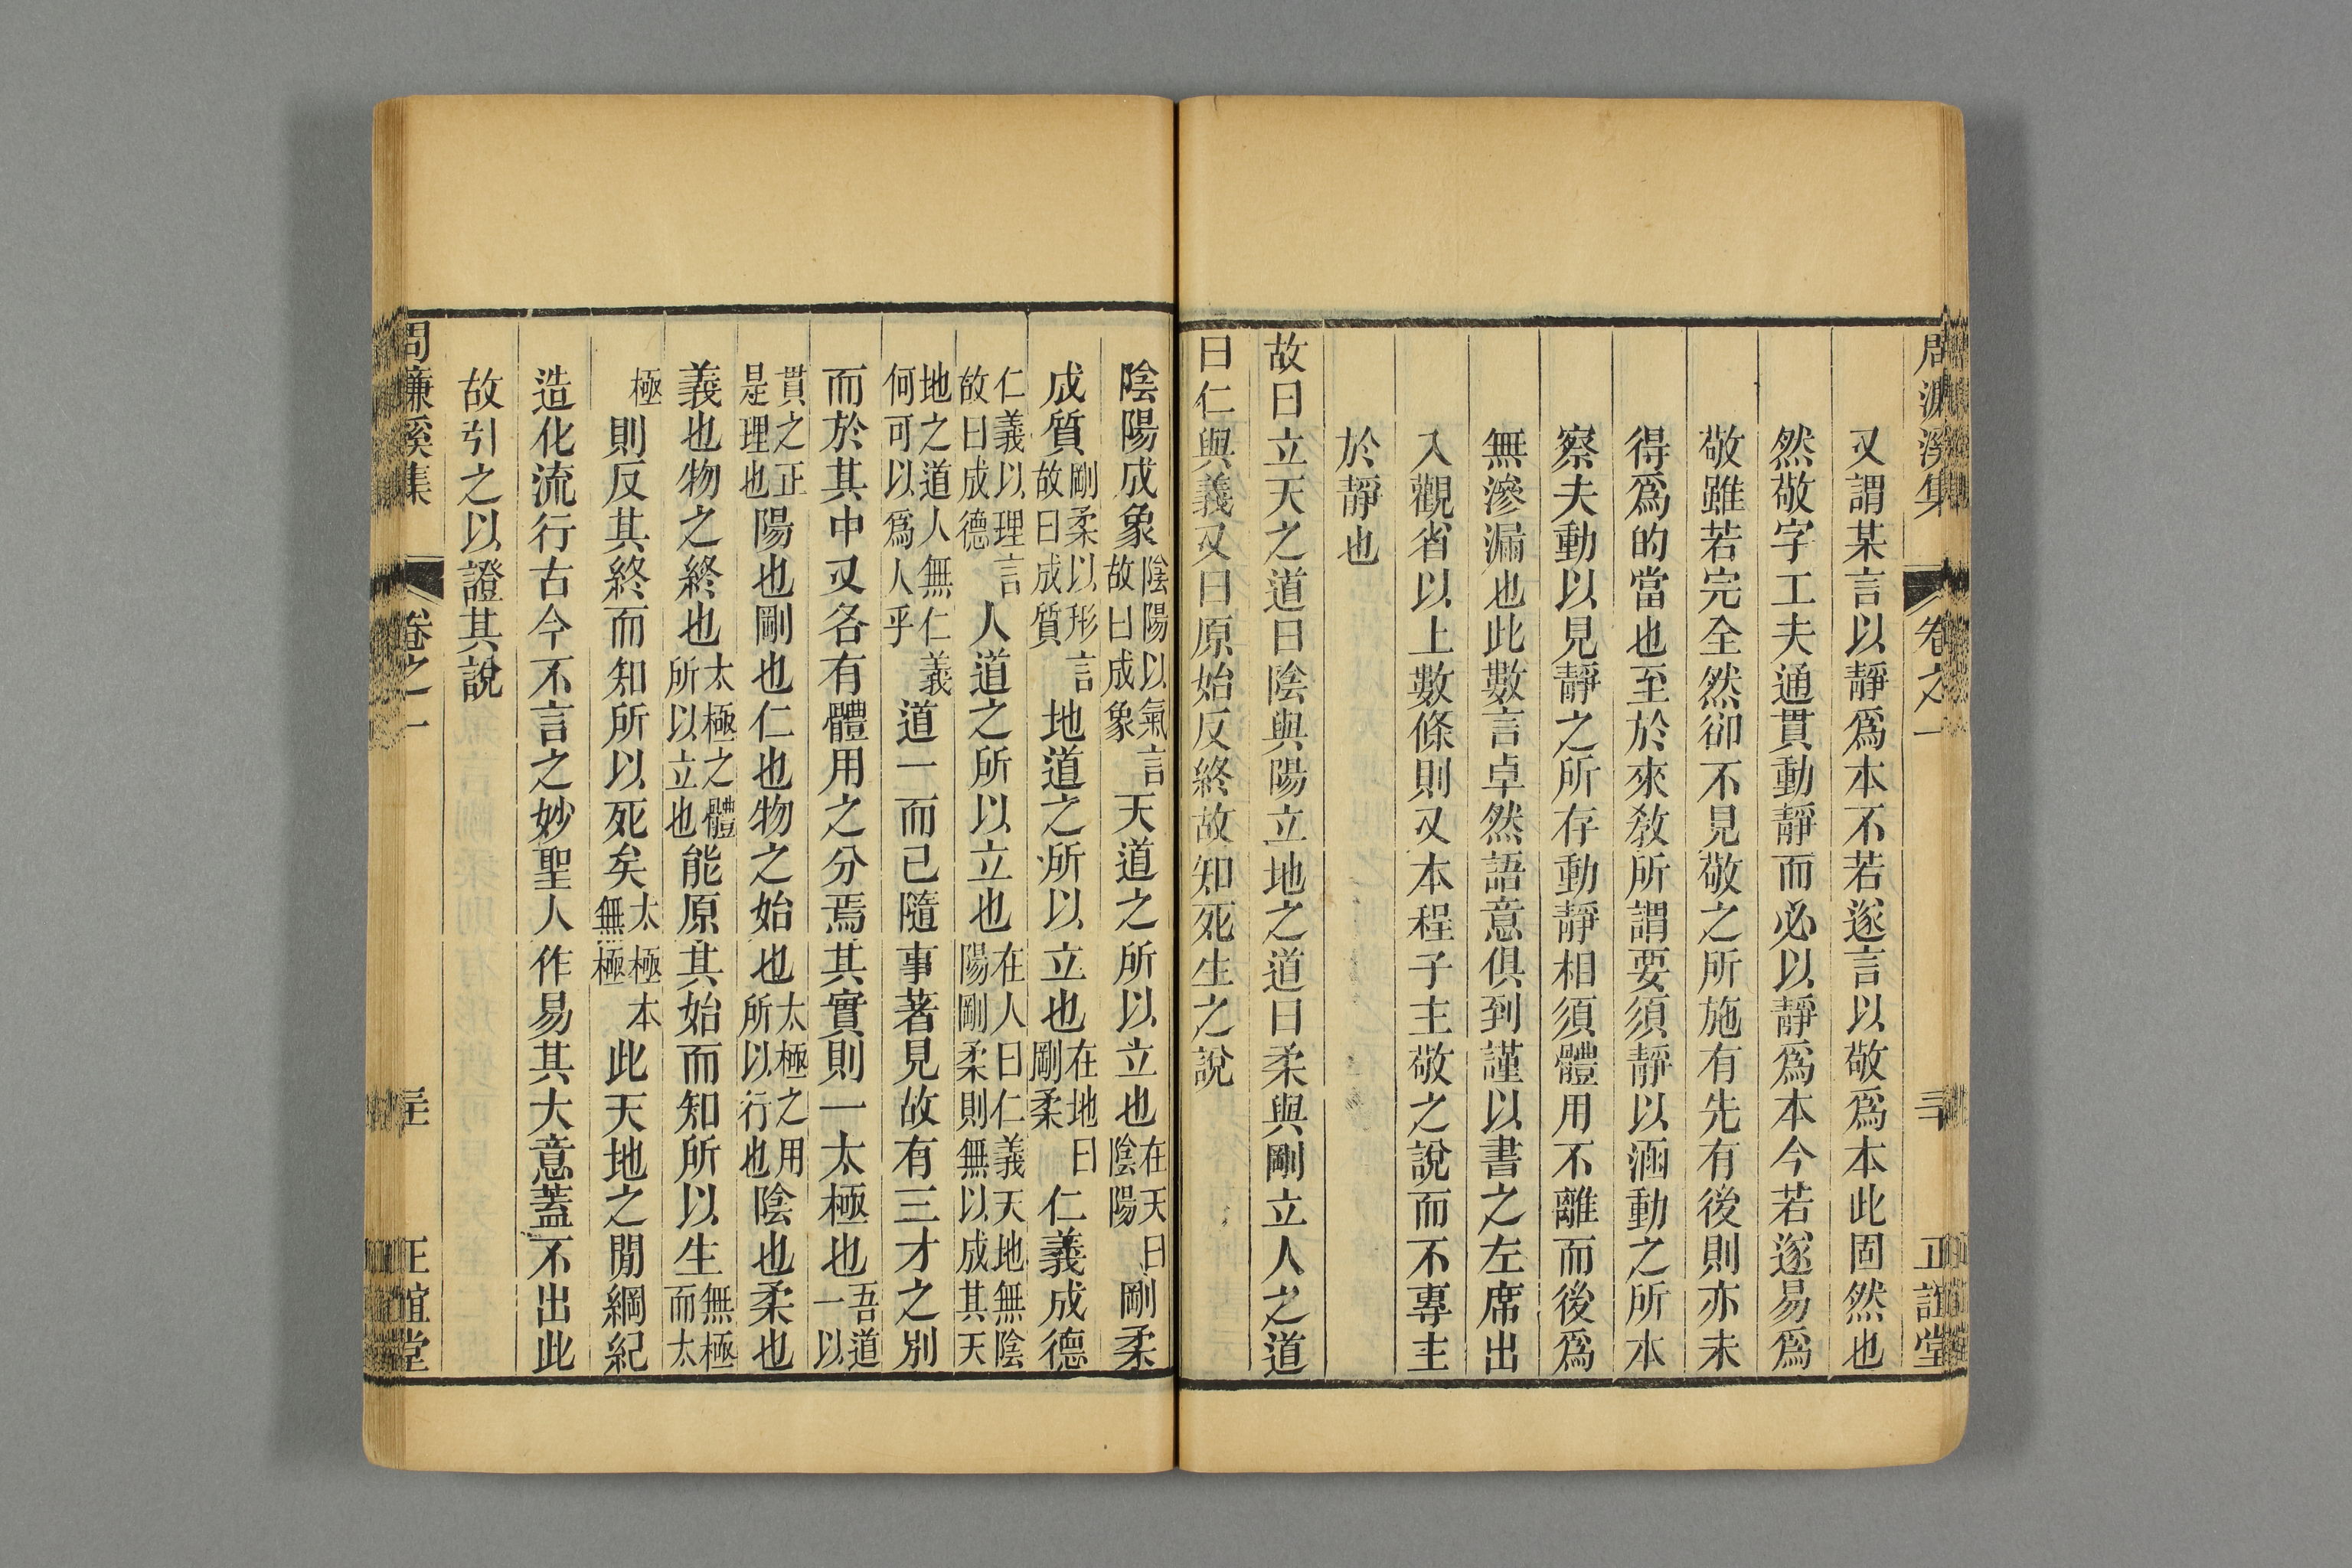 周濂溪集 卷之一 正誼堂
又謂某言以靜爲本不若遂言以敬爲本此固然也
然敬字工夫通貫動靜而必以靜爲本今若遂易爲
敬雖若完全然卻不見敬之所施有先有後則亦未
得爲的當也至於來敎所謂要須靜以涵動之所本
察夫動以見靜之所存動靜相須體用不離而後爲
無滲漏也此數言卓然語意俱到謹以書之左席出
入觀省以上數條則又本程子主敬之說而不專主
於靜也
故曰立天之道曰陰與陽立地之道曰柔與剛立人之道
曰仁與義又曰原始反終故知死生之說
陰陽成象陰陽以氣言故曰成象天道之所以立也在天曰陰陽剛柔
成質剛柔以形言故曰成質地道之所以立也在地曰剛柔仁義成德
仁義以理言故曰成德人道之所以立也在人曰仁義天地無陰陽剛柔則無以成其天
地之道人無仁義何可以爲人乎道一而已隨事著見故有三才之別
而於其中又各有體用之分焉其實則一太極也吾道一以
貫之正是理也陽也剛也仁也物之始也太極之用所以行也陰也柔也
義也物之終也太極之體所以立也能原其始而知所以生無極而太
極則反其終而知所以死矣太極本無極此天地之閒綱紀
造化流行古今不言之妙聖人作易其大意蓋不出此
故引之以證其說
周濂溪集 卷之一 正誼堂